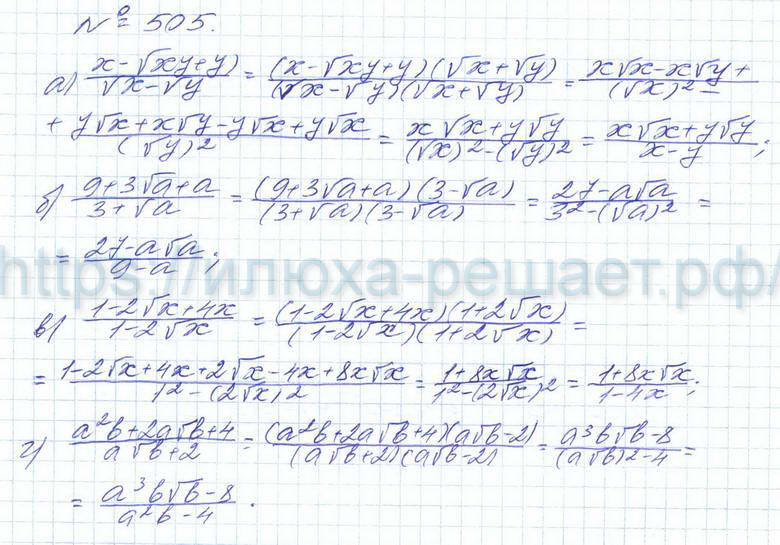 № 505.
а) (x-√xy+y)/(√x-√y) = ((x-√xy+y)(√x+√y))/((√x-√y)(√x+√y)) = (x√x-x√y+)/((√x)²-
(+y√x+x√y-y√x+y√x)/((√y)²) = (x√x+y√y)/((√x)²-(√y)²) = (x√x+y√y)/(x-y);
б) (9+3√a+a)/(3+√a) = ((9+3√a+a)(3-√a))/((3+√a)(3-√a)) = (27-a√a)/(3²-(√a)²) =
= (27-a√a)/(9-a);
https://илюха-решает.рф/
в) (1-2√x+4x)/(1-2√x) = ((1-2√x+4x)(1+2√x))/((1-2√x)(1+2√x)) =
= (1-2√x+4x+2√x-4x+8x√x)/(1²-(2√x)²) = (1+8x√x)/(1²-(2√x)²) = (1+8x√x)/(1-4x);
г) (a²b+2a√b+4)/(a√b+2) = ((a²b+2a√b+4)(a√b-2))/((a√b+2)(a√b-2)) = (a³b√b-8)/((a√b)²-4) =
= (a³b√b-8)/(a²b-4).